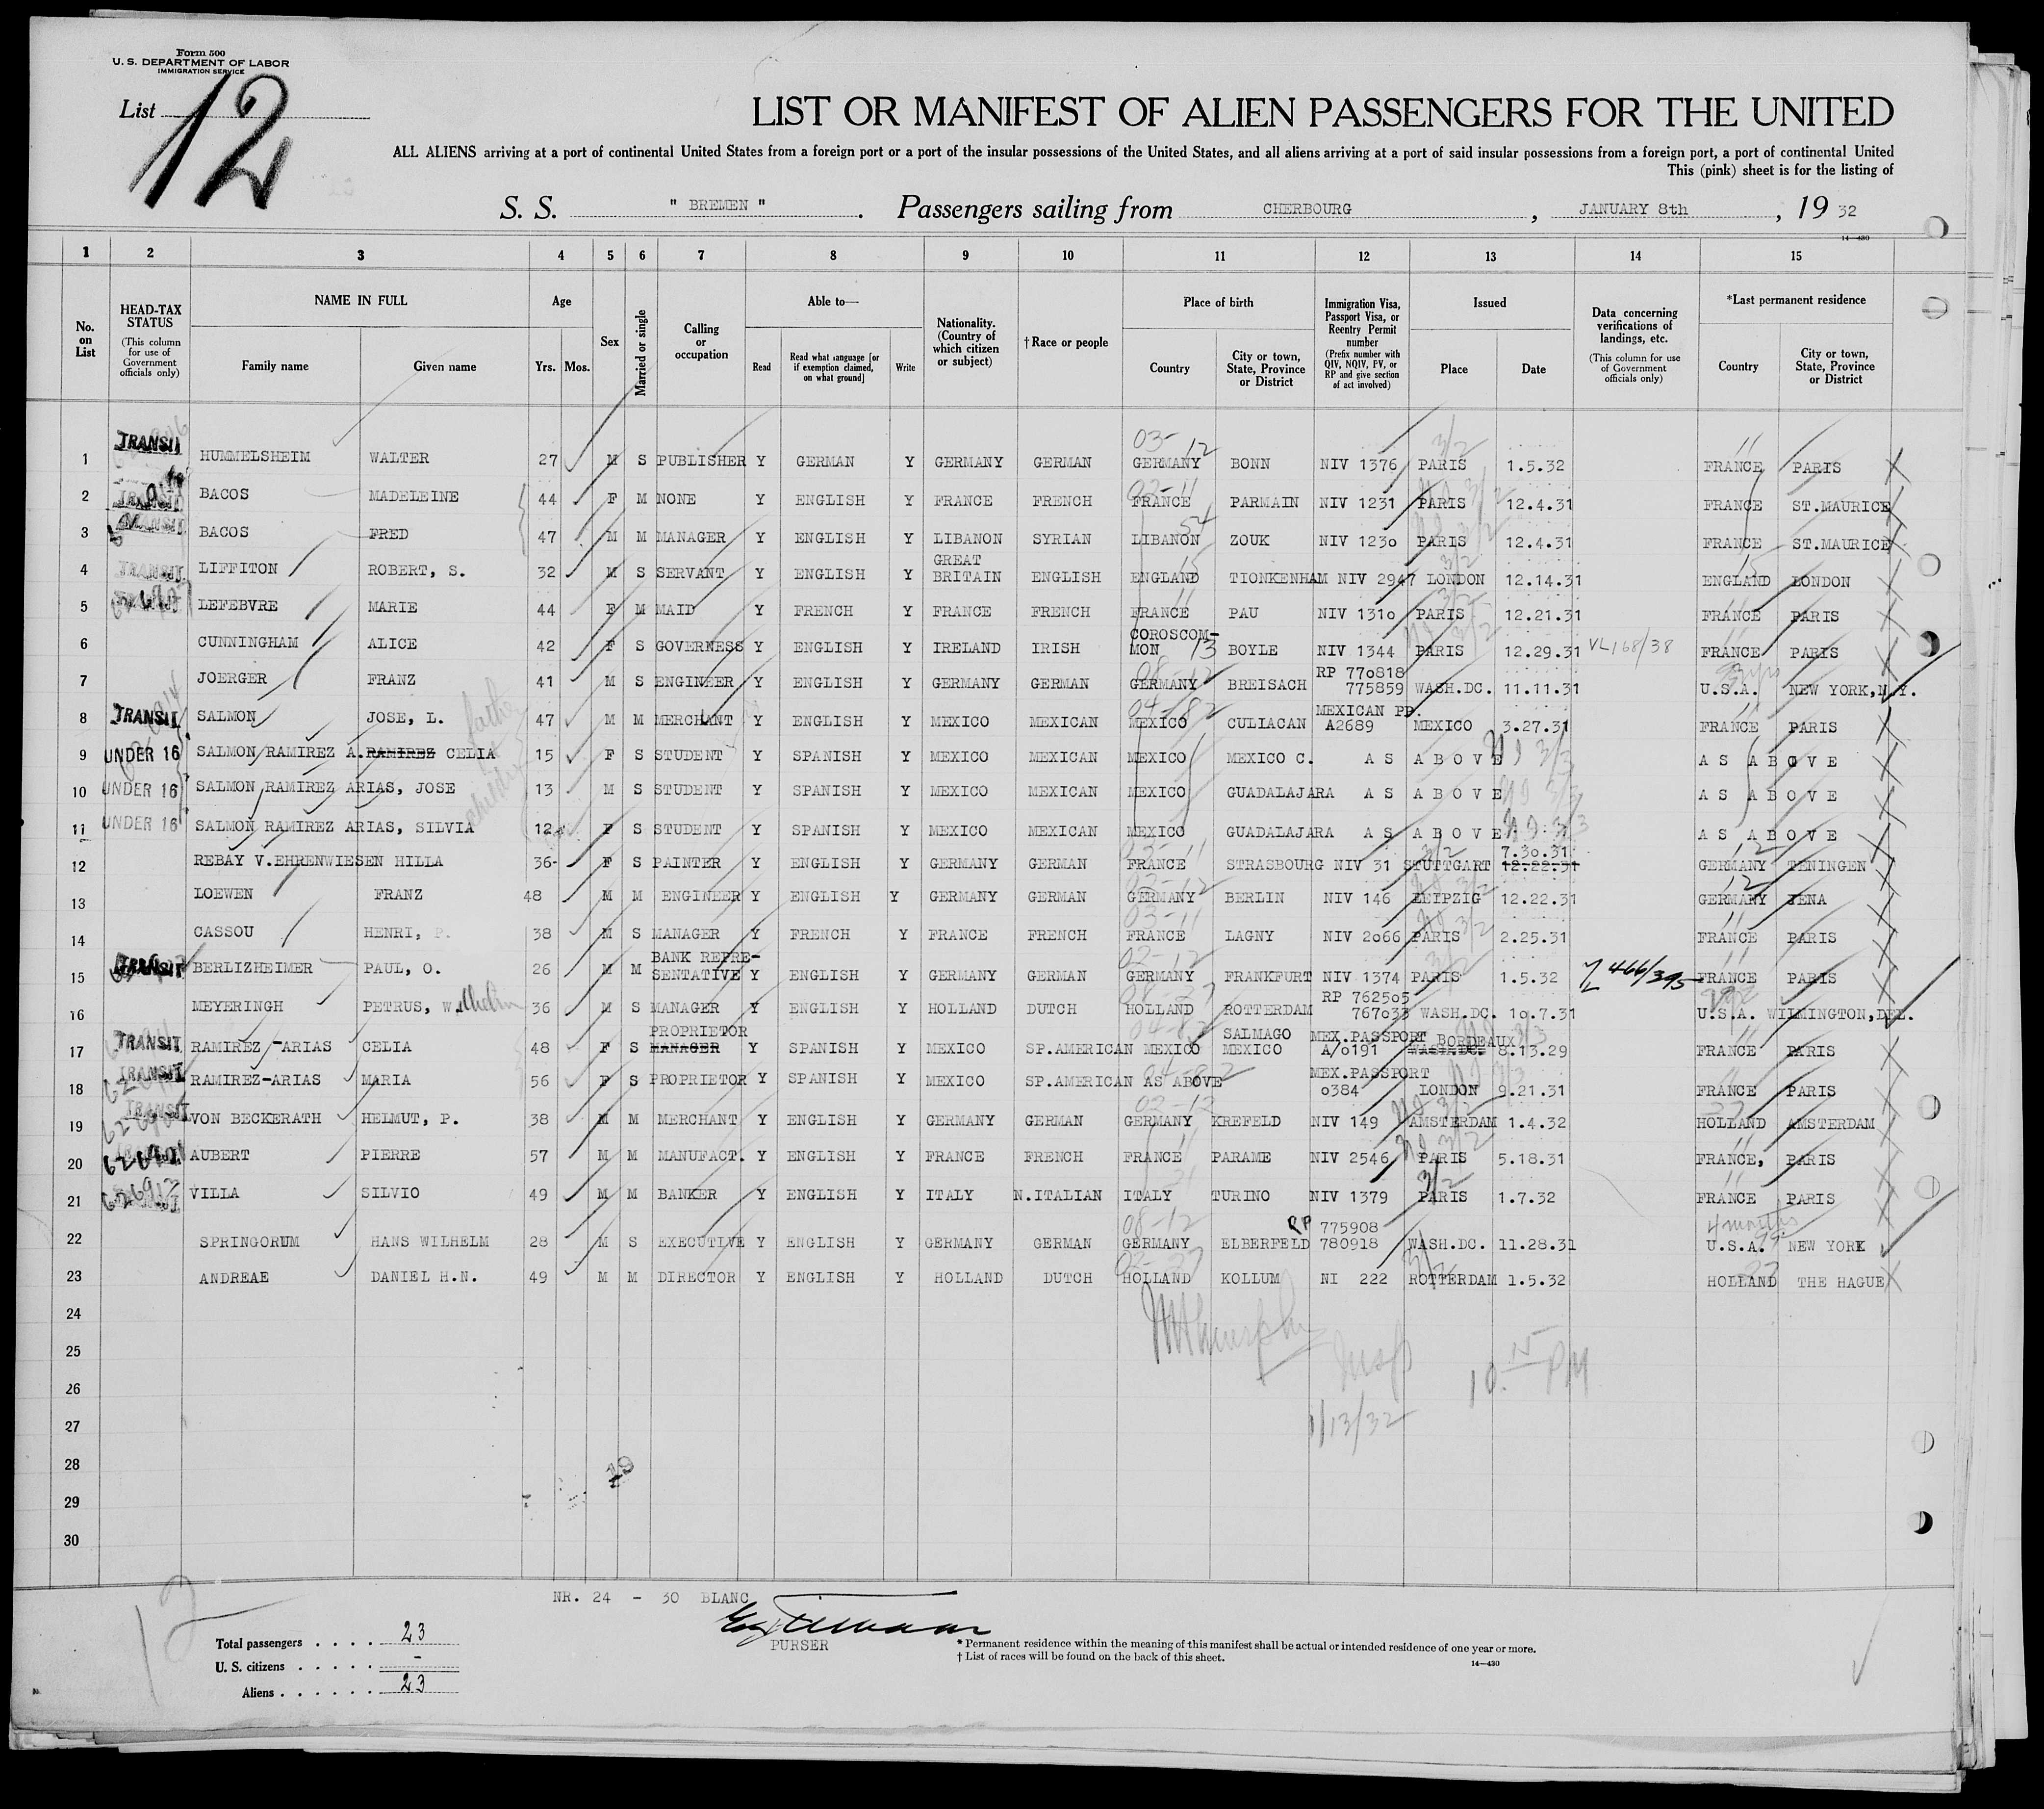 Form 500
U. S. DEPARTMENT OF LABOR
IMMIGRATION SERVICE
List 12
LIST OR MANIFEST OF ALIEN PASSENGERS FOR THE UNITED
ALL ALIENS arriving at a port of continental United States from a foreign port or a port of the insular possessions of the United States, and all aliens arriving at a port of said insular possessions from a foreign port, a port of continental United
This (pink) sheet is for the listing of
S. S. " BREMEN " . Passengers sailing from CHERBOURG , JANUARY 8th , 19 32
14—430
1 2 3 4 5 6 7 8 9 10 11 12 13 14 15
No. on List
HEAD-TAX STATUS (This column for use of Government officials only)
NAME IN FULL
Family name Given name
Age
Yrs. Mos.
Sex
Married or single
Calling or occupation
Able to—
Read Read what language [or if exemption claimed, on what ground] Write
Nationality. (Country of which citizen or subject)
† Race or people
Place of birth
Country City or town, State, Province or District
Immigration Visa, Passport Visa, or Reentry Permit number (Prefix number with QIV, NQIV, PV, or RP and give section of act involved)
Issued
Place Date
Data concerning verifications of landings, etc. (This column for use of Government officials only)
*Last permanent residence
Country City or town, State, Province or District
1 TRANSIT HUMMELSHEIM WALTER 27 M S PUBLISHER Y GERMAN Y GERMANY GERMAN GERMANY BONN NIV 1376 PARIS 1.5.32 FRANCE PARIS
2 TRANSIT BACOS MADELEINE 44 F M NONE Y ENGLISH Y FRANCE FRENCH FRANCE PARMAIN NIV 1231 PARIS 12.4.31 FRANCE ST.MAURICE
3 TRANSIT BACOS FRED 47 M M MANAGER Y ENGLISH Y LIBANON SYRIAN LIBANON ZOUK NIV 1230 PARIS 12.4.31 FRANCE ST.MAURICE
4 TRANSIT LIFFITON ROBERT, S. 32 M S SERVANT Y ENGLISH Y GREAT BRITAIN ENGLISH ENGLAND TIONKENHAM NIV 2947 LONDON 12.14.31 ENGLAND LONDON
5 LEFEBVRE MARIE 44 F M MAID Y FRENCH Y FRANCE FRENCH FRANCE PAU NIV 1310 PARIS 12.21.31 FRANCE PARIS
6 CUNNINGHAM ALICE 42 F S GOVERNESS Y ENGLISH Y IRELAND IRISH COROSCOM-MON BOYLE NIV 1344 PARIS 12.29.31 VL168/38 FRANCE PARIS
7 JOERGER FRANZ 41 M S ENGINEER Y ENGLISH Y GERMANY GERMAN GERMANY BREISACH RP 770818 775859 WASH.DC. 11.11.31 U.S.A. NEW YORK,N.Y.
8 TRANSIT SALMON JOSE, L. 47 M M MERCHANT Y ENGLISH Y MEXICO MEXICAN MEXICO CULIACAN MEXICAN PP. A2689 MEXICO 3.27.31 FRANCE PARIS
9 UNDER 16 SALMON RAMIREZ A. RAMIREZ CELIA 15 F S STUDENT Y SPANISH Y MEXICO MEXICAN MEXICO MEXICO C. AS ABOVE AS ABOVE
10 UNDER 16 SALMON RAMIREZ ARIAS, JOSE 13 M S STUDENT Y SPANISH Y MEXICO MEXICAN MEXICO GUADALAJARA AS ABOVE AS ABOVE
11 UNDER 16 SALMON RAMIREZ ARIAS, SILVIA 12 F S STUDENT Y SPANISH Y MEXICO MEXICAN MEXICO GUADALAJARA AS ABOVE AS ABOVE
12 REBAY V.EHRENWIESEN HILLA 36 F S PAINTER Y ENGLISH Y GERMANY GERMAN FRANCE STRASBOURG NIV 31 STUTTGART 7.30.31 12.22.31 GERMANY TENINGEN
13 LOEWEN FRANZ 48 M M ENGINEER Y ENGLISH Y GERMANY GERMAN GERMANY BERLIN NIV 146 LEIPZIG 12.22.31 GERMANY JENA
14 CASSOU HENRI, P. 38 M S MANAGER Y FRENCH Y FRANCE FRENCH FRANCE LAGNY NIV 2066 PARIS 2.25.31 FRANCE PARIS
15 TRANSIT BERLIZHEIMER PAUL, O. 26 M M BANK REPRE-SENTATIVE Y ENGLISH Y GERMANY GERMAN GERMANY FRANKFURT NIV 1374 PARIS 1.5.32 FRANCE PARIS
16 MEYERINGH PETRUS, Wilhelm 36 M S MANAGER Y ENGLISH Y HOLLAND DUTCH HOLLAND ROTTERDAM RP 762505 767033 WASH.DC. 10.7.31 U.S.A. WILMINGTON,DEL.
17 TRANSIT RAMIREZ-ARIAS CELIA 48 F S PROPRIETOR MANAGER Y SPANISH Y MEXICO SP.AMERICAN MEXICO SALMAGO MEXICO MEX.PASSPORT A/0191 BORDEAUX 8.13.29 FRANCE PARIS
18 TRANSIT RAMIREZ-ARIAS MARIA 56 F S PROPRIETOR Y SPANISH Y MEXICO SP.AMERICAN AS ABOVE MEX.PASSPORT 0384 LONDON 9.21.31 FRANCE PARIS
19 TRANSIT VON BECKERATH HELMUT, P. 38 M M MERCHANT Y ENGLISH Y GERMANY GERMAN GERMANY KREFELD NIV 149 AMSTERDAM 1.4.32 HOLLAND AMSTERDAM
20 AUBERT PIERRE 57 M M MANUFACT. Y ENGLISH Y FRANCE FRENCH FRANCE PARAME NIV 2546 PARIS 5.18.31 FRANCE, PARIS
21 VILLA SILVIO 49 M M BANKER Y ENGLISH Y ITALY N.ITALIAN ITALY TURINO NIV 1379 PARIS 1.7.32 FRANCE PARIS
22 SPRINGORUM HANS WILHELM 28 M S EXECUTIVE Y ENGLISH Y GERMANY GERMAN GERMANY ELBERFELD RP 775908 780918 WASH.DC. 11.28.31 4 months U.S.A. NEW YORK
23 ANDREAE DANIEL H.N. 49 M M DIRECTOR Y ENGLISH Y HOLLAND DUTCH HOLLAND KOLLUM NI 222 ROTTERDAM 1.5.32 HOLLAND THE HAGUE
24
25
10 15 PM
26
27
1/13/32
28
29
30
NR. 24 - 30 BLANC
PURSER
Total passengers . . . . 23
U. S. citizens . . . . . -
Aliens . . . . . . 23
* Permanent residence within the meaning of this manifest shall be actual or intended residence of one year or more.
† List of races will be found on the back of this sheet.
14—430
12